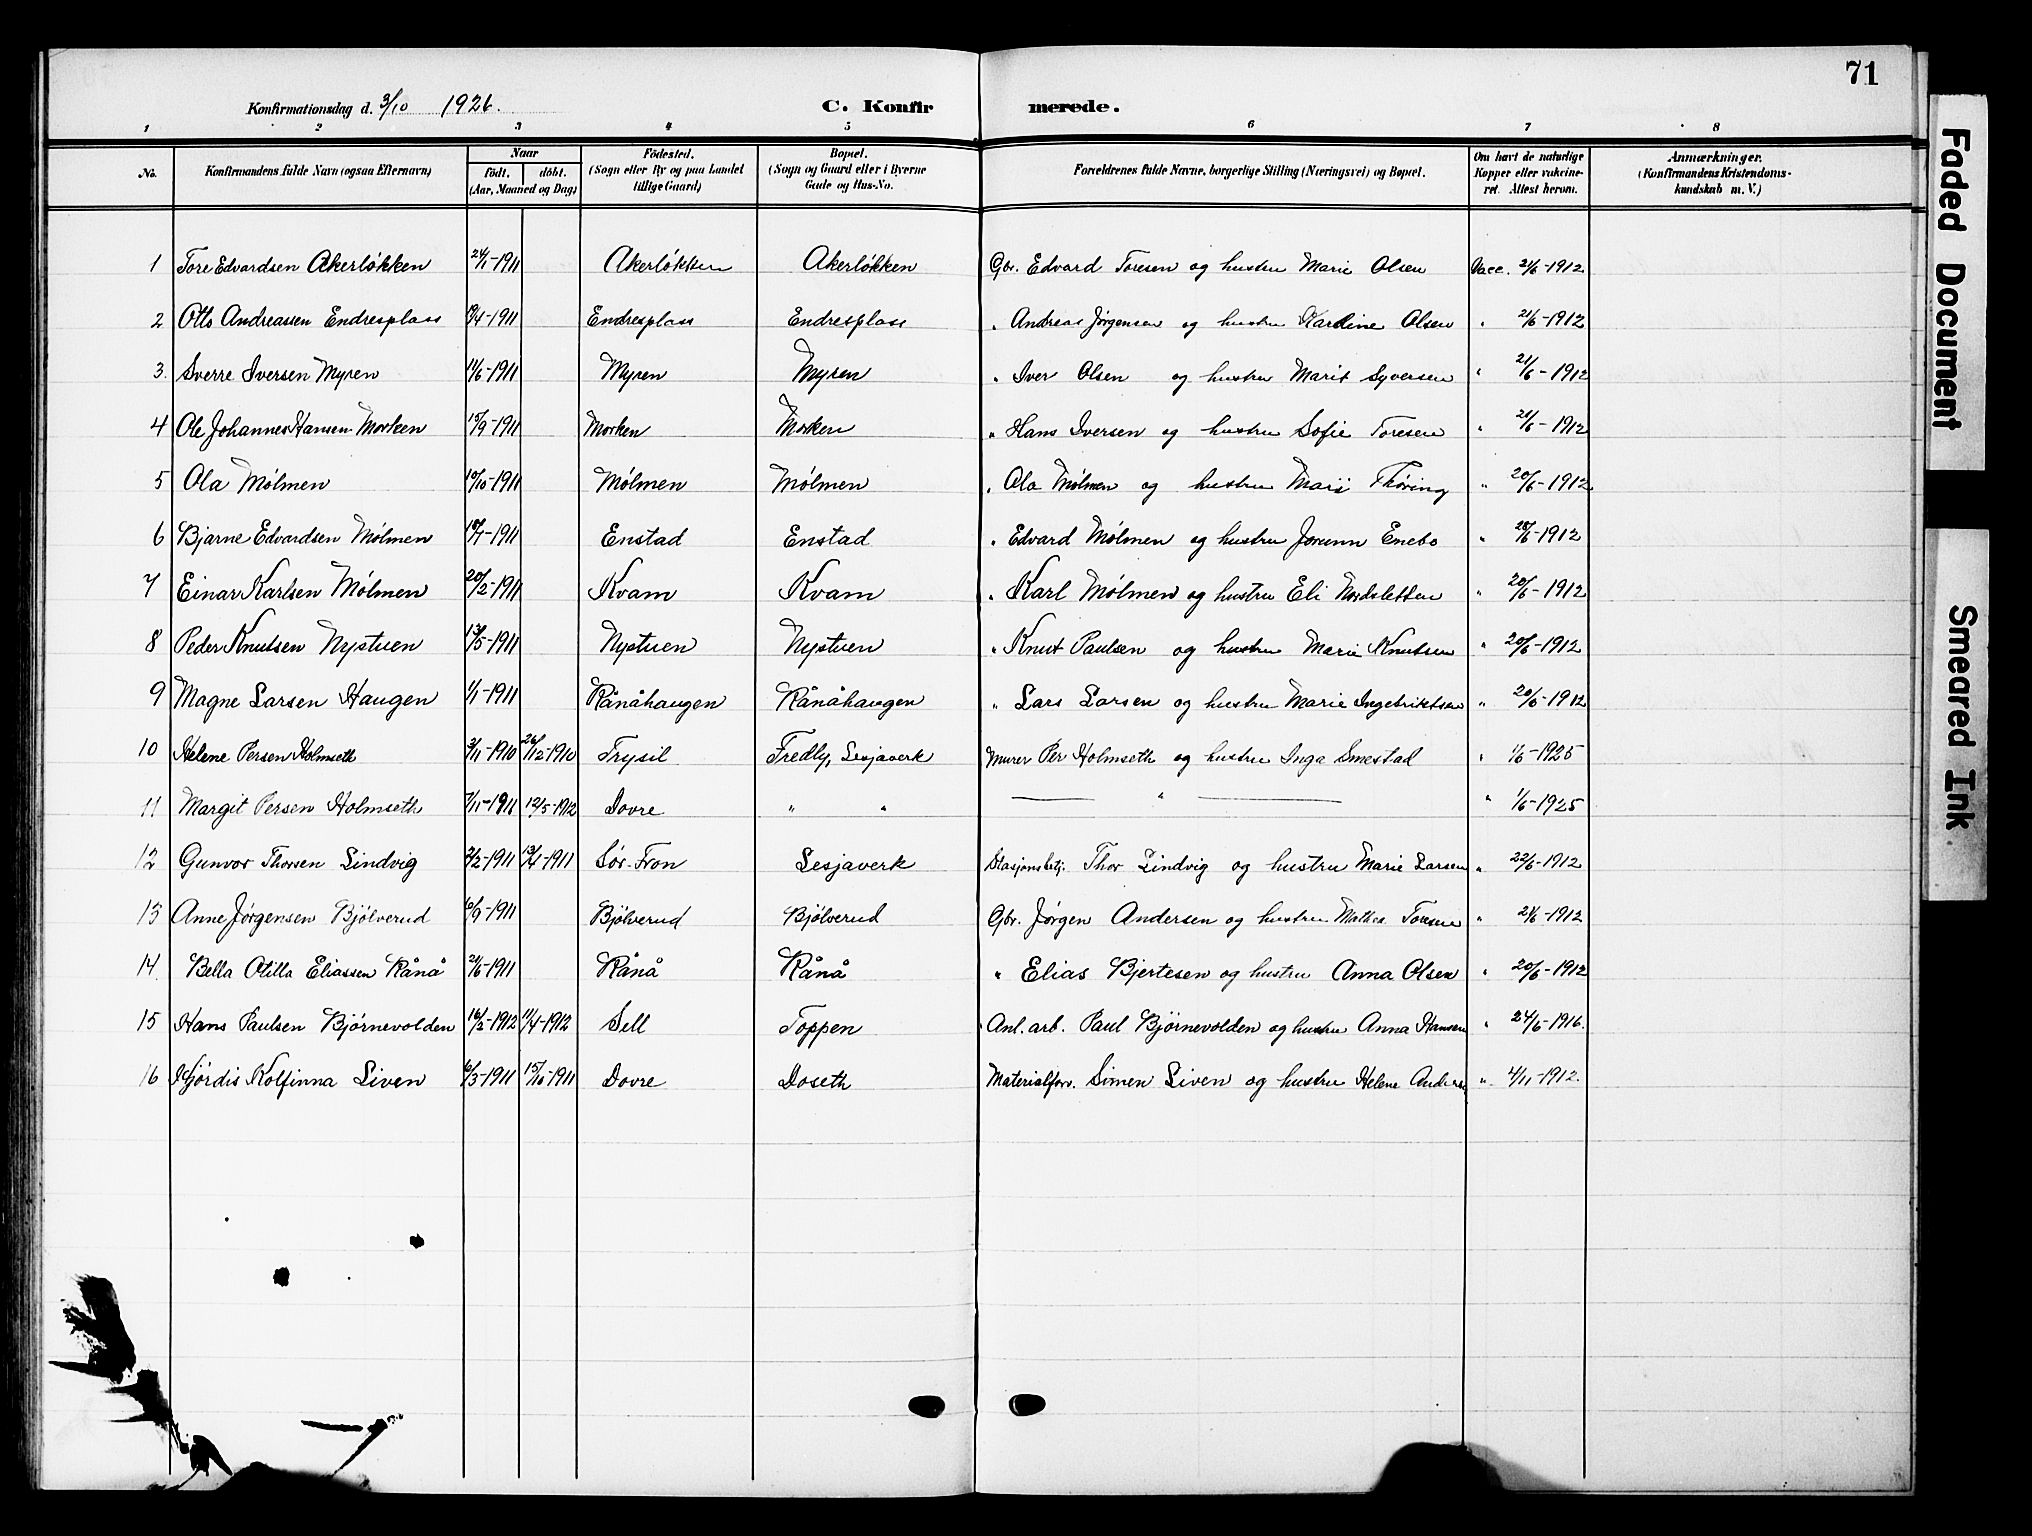 71
Konfirmationsdag d. 3/10 1926.
C. Konfirmerede.
1 2 3 4 5 6 7 8
No.
Konfirmandens fulde Navn (ogsaa Efternavn)
Naar
født. døbt.
(Aar, Maaned og Dag)
Födested.
(Sogn eller By og paa Landet
tillige Gaard)
Bopæl.
(Sogn og Gaard eller i Byerne
Gade og Hus-No.
Forældrenes fulde Navne, borgerlige Stilling (Næringsvei) og Bopæl.
Om havt de naturlige
Kopper eller vakcine-
ret. Attest herom.
Anmærkninger.
(Konfirmandens Kristendoms-
kundskab m. V.)
1 Tore Edvardsen Akerløkken 24/1-1911 Akerløkken Akerløkken Gbr. Edvard Toresen og hustru Marie Olsen Vacc. 21/6-1912
2 Otto Andreassen Endresplass /4-1911 Endresplass Endresplass " Andreas Jørgensen og hustru Karoline Olsen " 21/6-1912
3. Sverre Iversen Myren 11/6-1911 Myren Myren " Iver Olsen og hustru Marit Syversen " 21/6-1912
4 Ole Johannes Hansen Morken 15/9-1911 Morken Morken " Hans Iversen og hustru Sofie Toresen " 21/6-1912
5 Ola Mølmen 10/10-1911 Mølmen Mølmen " Ola Mølmen og hustru Mari Thøring " 20/6-1912
6 Bjarne Edvardsen Mølmen -1911 Enstad Enstad " Edvard Mølmen og hustru Jorunn Enebo " 20/6-1912
7 Einar Karlsen Mølmen 20/2-1911 Kvam Kvam " Karl Mølmen og hustru Eli Nordsletten " 20/6-1912
8 Peder Knutsen Nystuen 13/5-1911 Nystuen Nystuen " Knut Paulsen og hustru Marie Knutsen " 20/6-1912
9 Magne Larsen Haugen 1/1-1911 Rånåhaugen Rånåhaugen " Lars Larsen og hustru Marie Ingebriktsen " 20/6-1912
10 Helene Persen Holmseth 3/11-1910 26/12-1910 Trysil Fredly, Lesjaverk Murer Per Holmseth og hustru Inga Smestad " 1/6-1925
11 Margit Persen Holmseth 7/11-1911 12/5-1912 Dovre " " — " — " 1/6-1925
12 Gunvor Thorsen Lindvig 2/2-1911 13/4-1911 Sør-Fron Lesjaverk Stasjonsbetj. Thor Lindvig og hustru Marie Larsen " 22/6-1912
13 Anne Jørgensen Bjölverud 6/9-1911 Bjölverud Bjölverud Gbr. Jørgen Andersen og hustru Mathea Toresen " 21/6-1912
14 Bella Otilla Eliassen Rånå 21/6-1911 Rånå Rånå " Elias Bjertesen og hustru Anna Olsen " 20/6-1912
15 Hans Paulsen Bjørnevolden 16/2-1912 11/4-1912 Sell Toppen Anl. arb. Paul Bjørnevolden og hustru Anna Hansen " 24/6-1916.
16 Hjördis Kolfinna Liven 6/3-1911 15/10-1911 Dovre Doseth Materialforv. Simen Liven og hustru Helene " 4/11-1912.
Faded Document
Smeared Ink